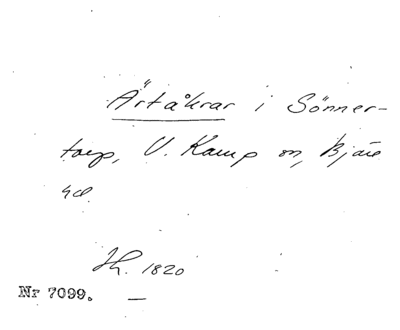 Ärtåkrar i Sönner-
torp, V. Karup sn, Bjäre
hd.
Jh. 1820
Nr 7099. —